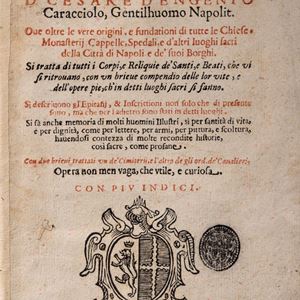 D. CESARE D'ENGENIO
Caracciolo, Gentilhuomo Napolit.
Oue oltre le vere origini, e fundationi di tutte le Chiese,
Monasterij, Cappelle, Spedali, e d'altri luoghi sacri
della Città di Napoli e de' suoi Borghi.
Si tratta di tutti i Corpi, e Reliquie de' Santi, e Beati, che vi
si ritrouano, con vn brieue compendio delle lor vite, e
dell'opere pie, ch'in detti luoghi sacri si fanno.
Si descriuono gl'Epitafij, & Inscrittioni non solo che di presente
sono, ma che per l'adietro sono stati in detti luoghi.
Si fà anche memoria di molti huomini Illustri, sì per santità di vita,
e per dignità, come per lettere, per armi, per pittura, e scoltura,
hauendosi contezza di molte recondite historie,
così sacre, come profane.
Con due brieui trattati vn de' Cimiterij, e l'altro de gli ord. de' Caualieri.
Opera non men vaga, che vtile, e curiosa.
CON PIV INDICI.